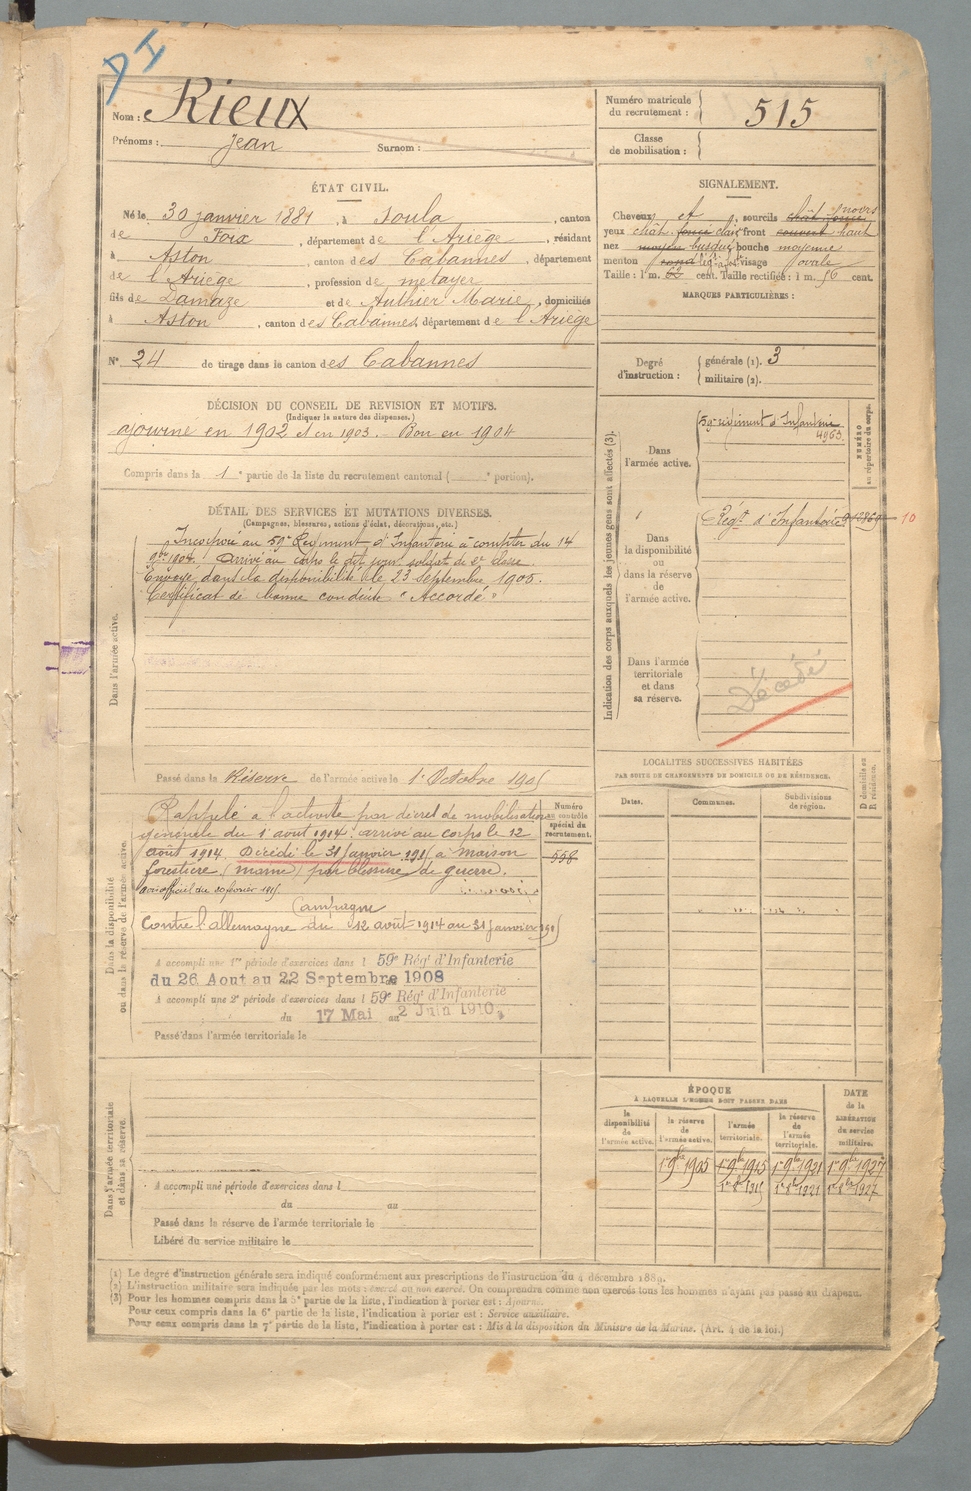 DI
Nom : Rieux
Prénoms : Jean Surnom :
Numéro matricule du recrutement : 515
Classe de mobilisation :
ÉTAT CIVIL.
Né le 30 janvier 1881, à Soula, canton
de Foix, département de l'Ariège, résidant
à Aston, canton des Cabannes, département
de l'Ariège, profession de métayer
fils de Damaze et de Authier Marie, domiciliés
à Aston, canton des Cabannes, département de l'Ariège
N° 24 de tirage dans le canton des Cabannes
SIGNALEMENT.
Cheveux et sourcils noirs
yeux chât. foncé clair front couvert haut
nez moyen busqué bouche moyenne
menton rond visage ovale
Taille : 1 m. 62 cent. Taille rectifiée : 1 m. 56 cent.
MARQUES PARTICULIÈRES :
Degré d'instruction : générale (1). 3
militaire (2).
DÉCISION DU CONSEIL DE REVISION ET MOTIFS.
(Indiquer la nature des dispenses.)
ajourné en 1902 et en 1903. - Bon en 1904
Compris dans la 1e partie de la liste du recrutement cantonal ( e portion).
DÉTAIL DES SERVICES ET MUTATIONS DIVERSES.
(Campagnes, blessures, actions d'éclat, décorations, etc.)
Dans l'armée active.
Incorporé au 59e Régiment d'Infanterie à compter du 14
9bre 1904. Arrivé au corps le dit jour soldat de 2e classe.
Envoyé dans la disponibilité le 23 septembre 1905.
Certificat de bonne conduite "Accordé"
Passé dans la Réserve de l'armée active le 1er Octobre 1905
Indication des corps auxquels les jeunes gens sont affectés (3).
NUMÉRO au répertoire du corps.
Dans l'armée active.
59e régiment d'Infanterie
4963.
Dans la disponibilité ou dans la réserve de l'armée active.
Régt d'Infanterie
10
Dans l'armée territoriale et dans sa réserve.
Décédé
LOCALITÉS SUCCESSIVES HABITÉES
PAR SUITE DE CHANGEMENTS DE DOMICILE OU DE RÉSIDENCE.
Dates. Communes. Subdivisions de région. D domicile ou R résidence.
Dans la disponibilité ou dans la réserve de l'armée active.
Numéro au contrôle spécial du recrutement.
558
Rappelé à l'activité par décret de mobilisation
générale du 1er août 1914. arrivé au corps le 12
août 1914. Décédé le 31 janvier 1915 à maison
forestière (marne) par blessure de guerre.
avis officiel du 20 février 1915
Campagne
Contre l'allemagne du 12 août 1914 au 31 janvier 1915
A accompli une 1re période d'exercices dans l 59e Régt d'Infanterie
du 26 Aout au 22 Septembre 1908
A accompli une 2e période d'exercices dans l 59e Régt d'Infanterie
du 17 Mai au 2 Juin 1910
Passé dans l'armée territoriale le
Dans l'armée territoriale et dans sa réserve.
A accompli une période d'exercices dans l
du au
Passé dans la réserve de l'armée territoriale le
Libéré du service militaire le
ÉPOQUE
À LAQUELLE L'HOMME DOIT PASSER DANS
DATE de la LIBÉRATION du service militaire.
la disponibilité de l'armée active. la réserve de l'armée active. l'armée territoriale. la réserve de l'armée territoriale.
1er 9bre 1905 1er 9bre 1915 1er 9bre 1921 1er 9bre 1927
1er 8bre 1915 1er 8bre 1921 1er 8bre 1927
(1) Le degré d'instruction générale sera indiqué conformément aux prescriptions de l'instruction du 4 décembre 1889.
(2) L'instruction militaire sera indiquée par les mots : exercé ou non exercé. On comprendra comme non exercés tous les hommes n'ayant pas passé au drapeau.
(3) Pour les hommes compris dans la 5e partie de la liste, l'indication à porter est : Ajourné.
Pour ceux compris dans la 6e partie de la liste, l'indication à porter est : Service auxiliaire.
Pour ceux compris dans la 7e partie de la liste, l'indication à porter est : Mis à la disposition du Ministre de la Marine. (Art. 4 de la loi.)